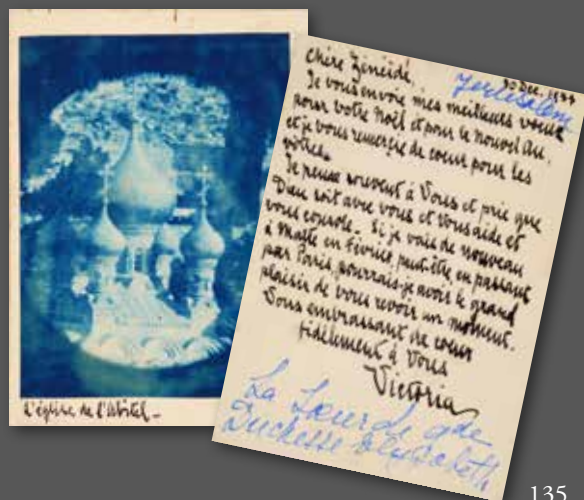 L'église de l'hôtel_
Chère Zéneïde,
30 Dec. 1934
Jerusalem
Je vous envoie mes meilleurs voeux
pour votre Noël et pour le Nouvel An,
et je vous remercie de coeur pour les
vôtres.
Je pense souvent à Vous et prie que
Dieu soit avec vous et vous aide et
vous console. Si je vais de nouveau
à Malte en février, peut-être en passant
par Paris pourrais-je avoir le grand
plaisir de vous revoir un moment.
Vous embrassant de coeur
fidèlement à Vous
Victoria
La Soeur de gde
Duchesse Elisabeth
135